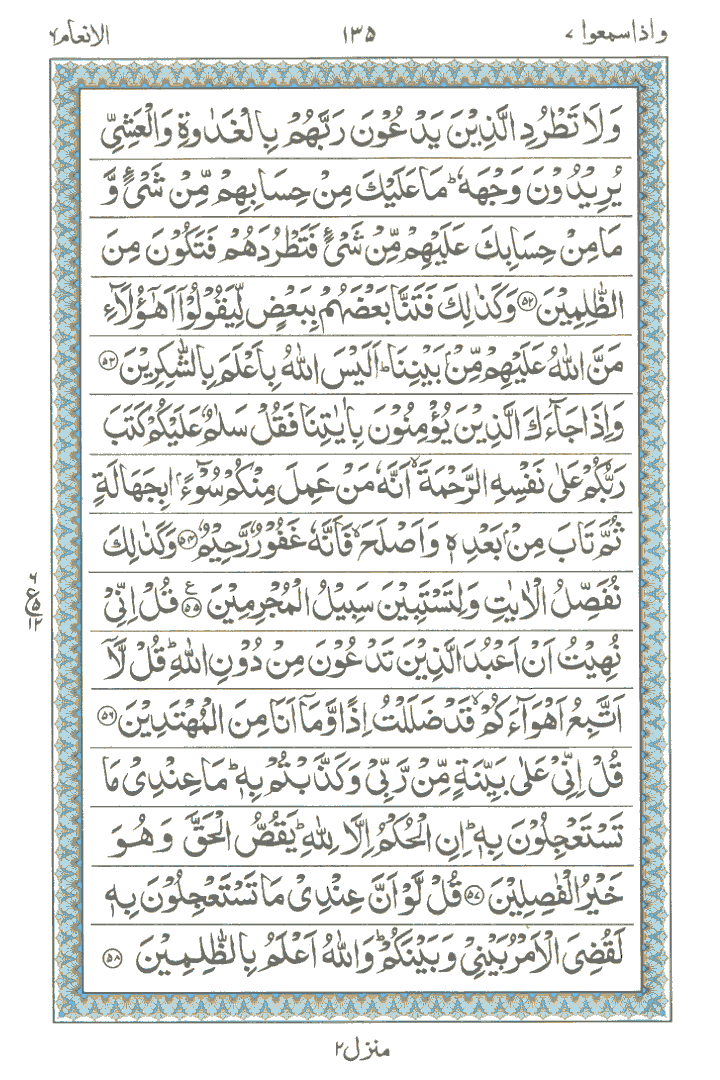 واذاسمعوا ٧
١٣۵
الانعام ٦
وَلَا تَطْرُدِ الَّذِيْنَ يَدْعُوْنَ رَبَّهُمْ بِالْغَدٰوةِ وَالْعَشِيِّ
يُرِيْدُوْنَ وَجْهَهٗ ؕ مَا عَلَيْكَ مِنْ حِسَابِهِمْ مِّنْ شَيْءٍ وَّ
مَا مِنْ حِسَابِكَ عَلَيْهِمْ مِّنْ شَيْءٍ فَتَطْرُدَهُمْ فَتَكُوْنَ مِنَ
الظّٰلِمِيْنَ ﴿۵۲﴾ وَكَذٰلِكَ فَتَنَّا بَعْضَهُمْ بِبَعْضٍ لِّيَقُوْلُوْۤا اَهٰۤؤُلَآءِ
مَنَّ اللّٰهُ عَلَيْهِمْ مِّنْۢ بَيْنِنَا ؕ اَلَيْسَ اللّٰهُ بِاَعْلَمَ بِالشّٰكِرِيْنَ ﴿۵۳﴾
وَاِذَا جَآءَكَ الَّذِيْنَ يُؤْمِنُوْنَ بِاٰيٰتِنَا فَقُلْ سَلٰمٌ عَلَيْكُمْ كَتَبَ
رَبُّكُمْ عَلٰى نَفْسِهِ الرَّحْمَةَ ۙ اَنَّهٗ مَنْ عَمِلَ مِنْكُمْ سُوْٓءًۢا بِجَهَالَةٍ
ثُمَّ تَابَ مِنْۢ بَعْدِهٖ وَاَصْلَحَ ۙ فَاَنَّهٗ غَفُوْرٌ رَّحِيْمٌ ﴿۵۴﴾ وَكَذٰلِكَ
نُفَصِّلُ الْاٰيٰتِ وَلِتَسْتَبِيْنَ سَبِيْلُ الْمُجْرِمِيْنَ ﴿۵۵﴾ ع قُلْ اِنِّيْ
نُهِيْتُ اَنْ اَعْبُدَ الَّذِيْنَ تَدْعُوْنَ مِنْ دُوْنِ اللّٰهِ ؕ قُلْ لَّاۤ
اَتَّبِعُ اَهْوَآءَكُمْ ۙ قَدْ ضَلَلْتُ اِذًا وَّمَاۤ اَنَا مِنَ الْمُهْتَدِيْنَ ﴿۵۶﴾
قُلْ اِنِّيْ عَلٰى بَيِّنَةٍ مِّنْ رَّبِّيْ وَكَذَّبْتُمْ بِهٖ ؕ مَا عِنْدِيْ مَا
تَسْتَعْجِلُوْنَ بِهٖ ؕ اِنِ الْحُكْمُ اِلَّا لِلّٰهِ ؕ يَقُصُّ الْحَقَّ وَهُوَ
خَيْرُ الْفٰصِلِيْنَ ﴿۵۷﴾ قُلْ لَّوْ اَنَّ عِنْدِيْ مَا تَسْتَعْجِلُوْنَ بِهٖ
لَقُضِيَ الْاَمْرُ بَيْنِيْ وَبَيْنَكُمْ ؕ وَاللّٰهُ اَعْلَمُ بِالظّٰلِمِيْنَ ﴿۵۸﴾
٦
ع ۵
١٢
منزل٢